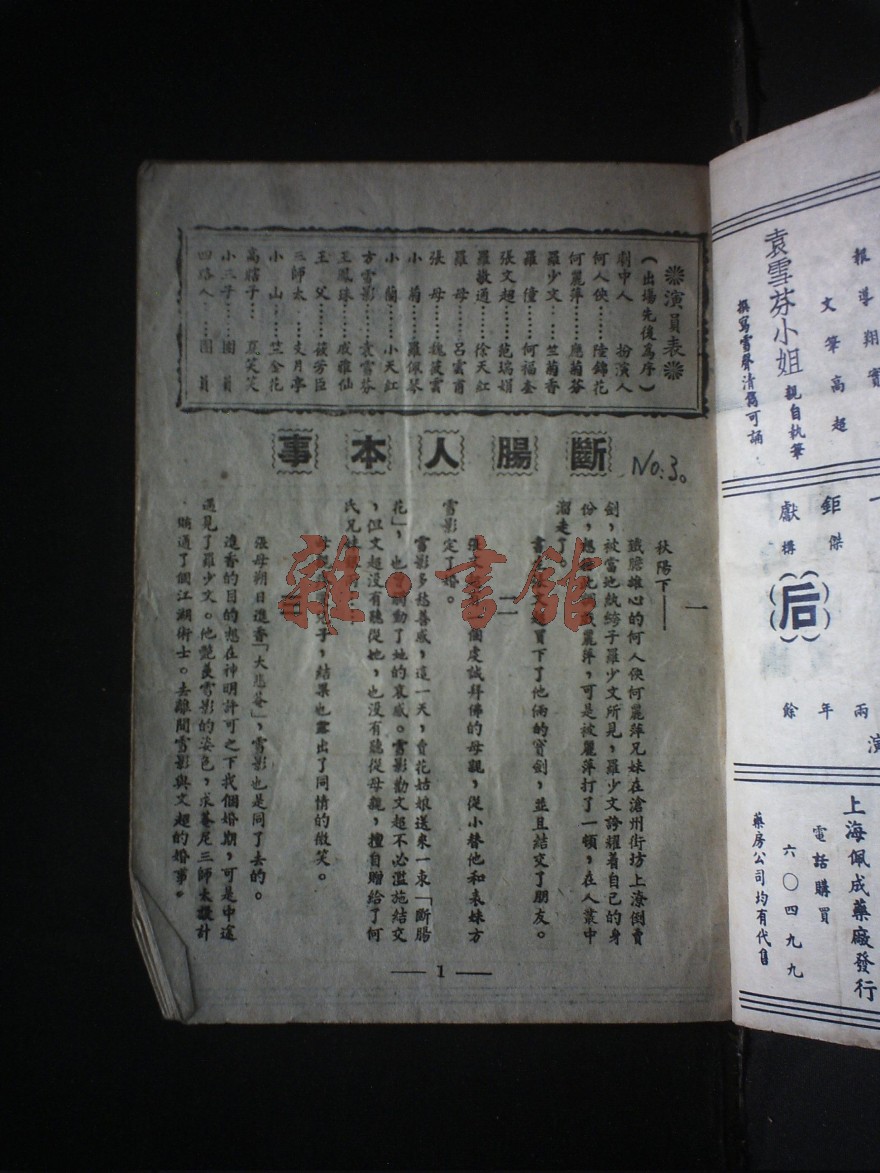 ※演員表※
（出場先後為序）
劇中人　扮演人
何人俠……陸錦花
何麗萍……應菊芬
羅少文……竺菊香
羅　僮……何福奎
張文超……范瑞娟
羅敖通……徐天紅
羅　母……呂雲甫
張　母……魏菠雲
小　菊……羅佩琴
小　蘭……小天紅
方雪影……袁雪芬
王鳳珠……戚雅仙
王　父……筱芳臣
三師太……支月亭
小　山……竺金花
高瞎子……夏笑笑
小三子……團　員
四路人……團　員
斷腸人本事
No:3。
一
秋陽下——
鐵膽雄心的何人俠何麗萍兄妹在滄州街坊上潦倒賣
劍，被當地紈絝子羅少文所見，羅少文誇耀着自己的身
份，想佔此個戲麗萍，可是被麗萍打了一頓，在人叢中
溜走了。
買下了他倆的寶劍，並且結交了朋友。
二
個虔誠拜佛的母親，從小替他和表妹方
雪影定了婚。
雪影多愁善感，這一天，賣花姑娘送來一束「斷腸
花」，也動了她的哀感。雪影勸文超不必濫施結交
，但文超沒有聽從她，也沒有聽從母親，擅自贈給了何
氏兄妹
母親子，結果也露出了同情的微笑。
三
張母朔日進香「大悲菴」，雪影也是同了去的。
進香的目的想在神明許可之下找個婚期，可是中途
遇見了羅少文。他艷羨雪影的姿色，求菴尼三師太設計
，購通了個江湖術士。去離間雪影與文超的婚事。
— 1 —
雜·書館
報導翔實
文筆高超
袁雪芬小姐親自執筆
撰寫雪聲清雋可誦
鉅傑
獻構
后
兩年餘
演
上海佩成藥廠發行
電話購買
六〇四九九
藥房公司均有代售